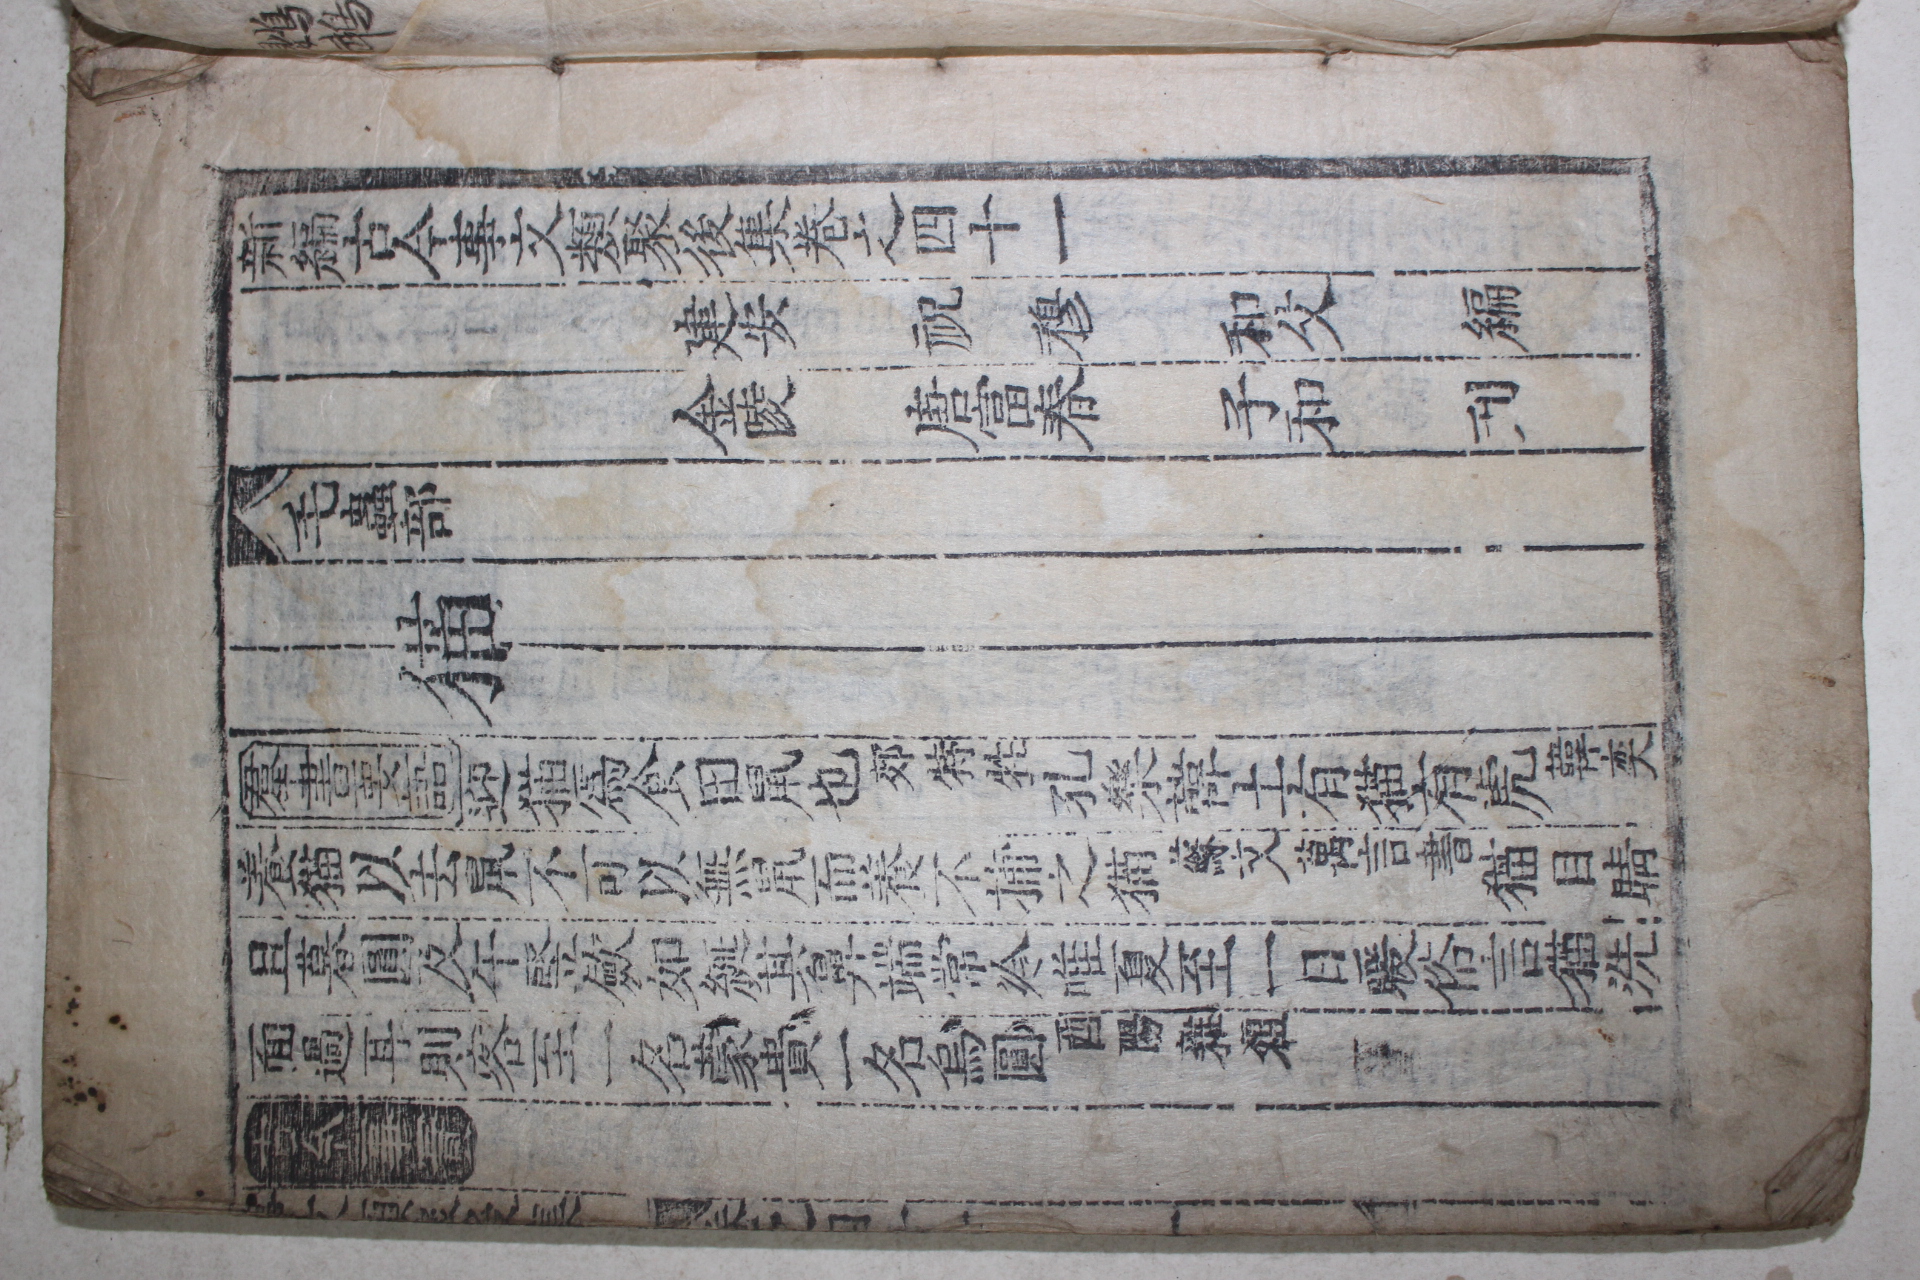 新編古今事文類聚後集卷之四十一
建安 祝穆 和父 編
金陵 唐富春 子和 刊
毛蟲部
猫
羣書要語 迎猫爲食田鼠也 郊特牲 孔樂韓土有猫有虎 韓奕
養猫以去鼠不可以無鼠而養不捕之猫 蘇文萬言書 猫目睛
旦暮圓及午竪斂如綖其鼻端常冷唯夏至一日暖俗言猫洗
面過耳則客至一名蒙貴一名烏圓 酉陽雜俎
古今事實